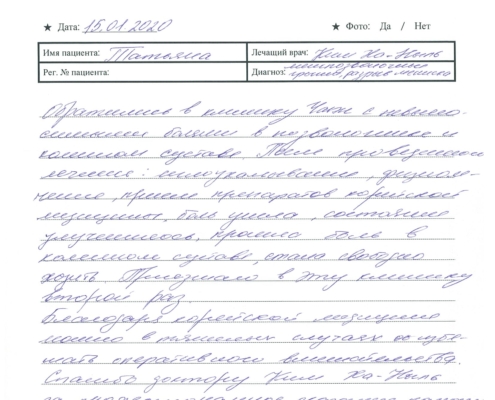 ★ Дата: 15.01.2020 ★ Фото: Да / Нет
Имя пациента: Татьяна Лечащий врач: Ким Ха-Ныль
Рег. № пациента: Диагноз: межпозвоночная грыжа, разрыв мениска
Обратились в клинику Чаен с невыно-
симыми болями в позвоночнике и
коленном суставе. После проведенного
лечения: иглоукалывание, физиоле-
чение, прием препаратов корейской
медицины, боль ушла, состояние
улучшилось, прошла боль в
коленном суставе, стала свободно
ходить. Приезжаю в эту клинику
второй раз.
Благодаря корейской медицине
можно в тяжелых случаях избе-
жать оперативного вмешательства.
Спасибо доктору Ким Ха-Ныль
за профессиональное